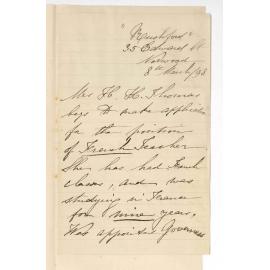 35 Edward St
Norwood
8th March/98
Mrs H. H. Thomas
begs to make application
for the position
of French Teacher
She has had French
classes, and was
studying in France
for nine years.
Was appointed Governess